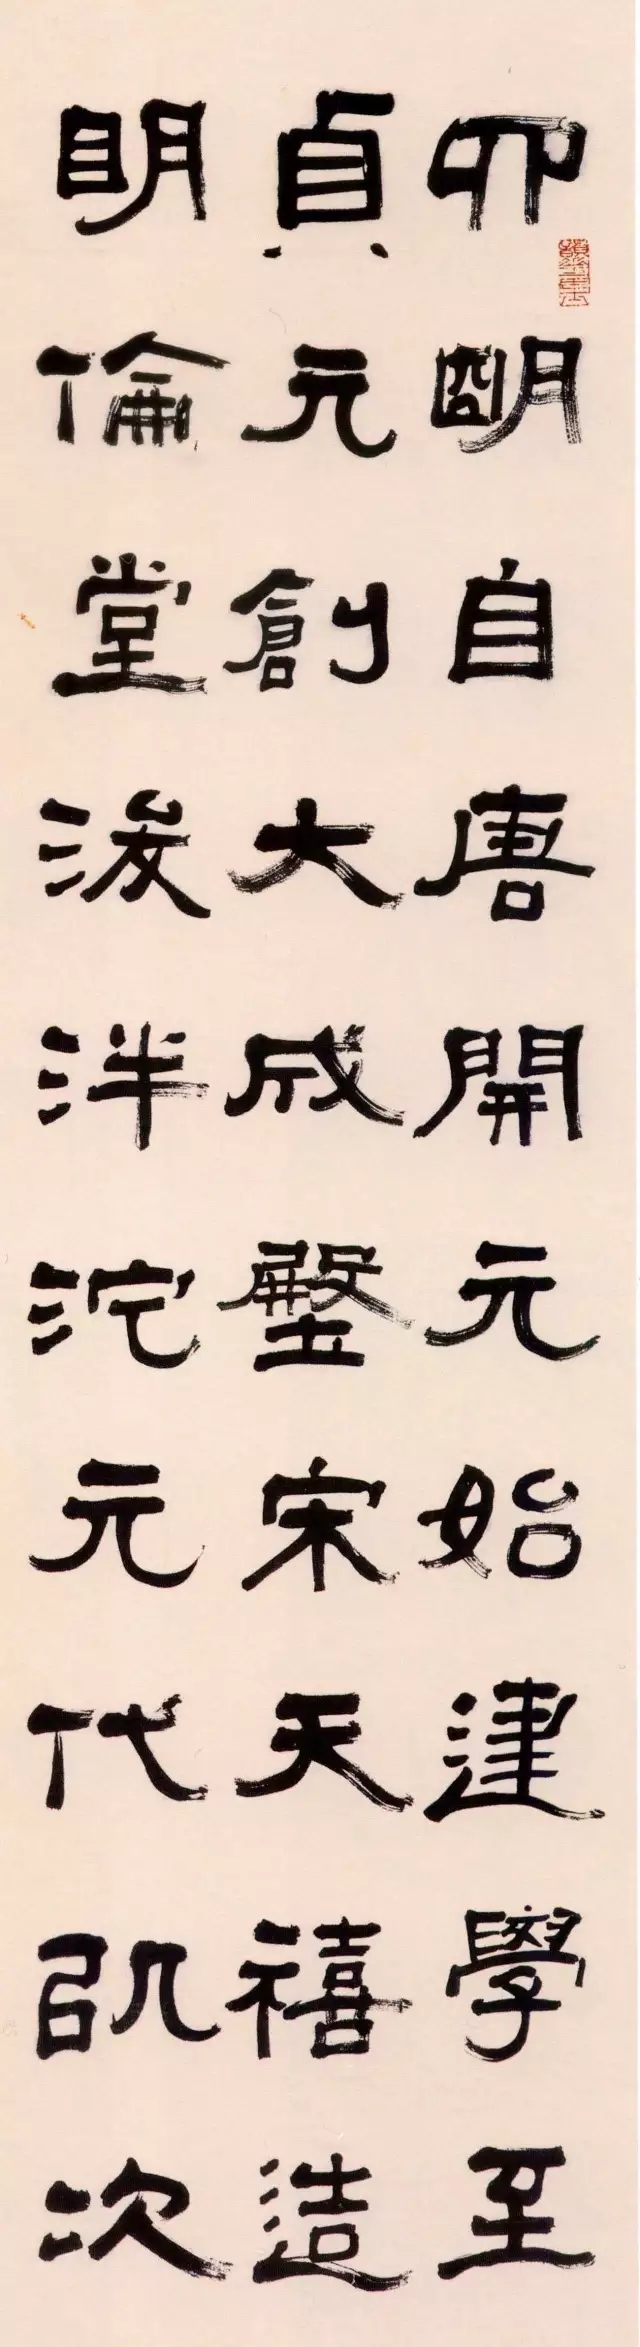 四明自唐開元始建學至
貞元創大成殿宋天禧造
明倫堂浚泮池元代以次